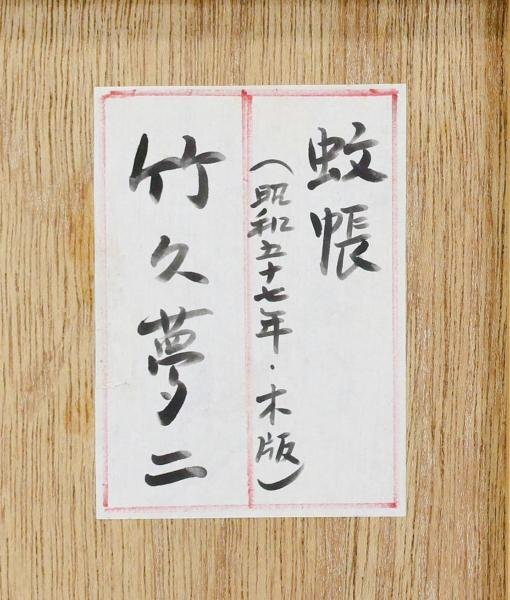 蚊帳
（昭和五十七年・木版）
竹久夢二